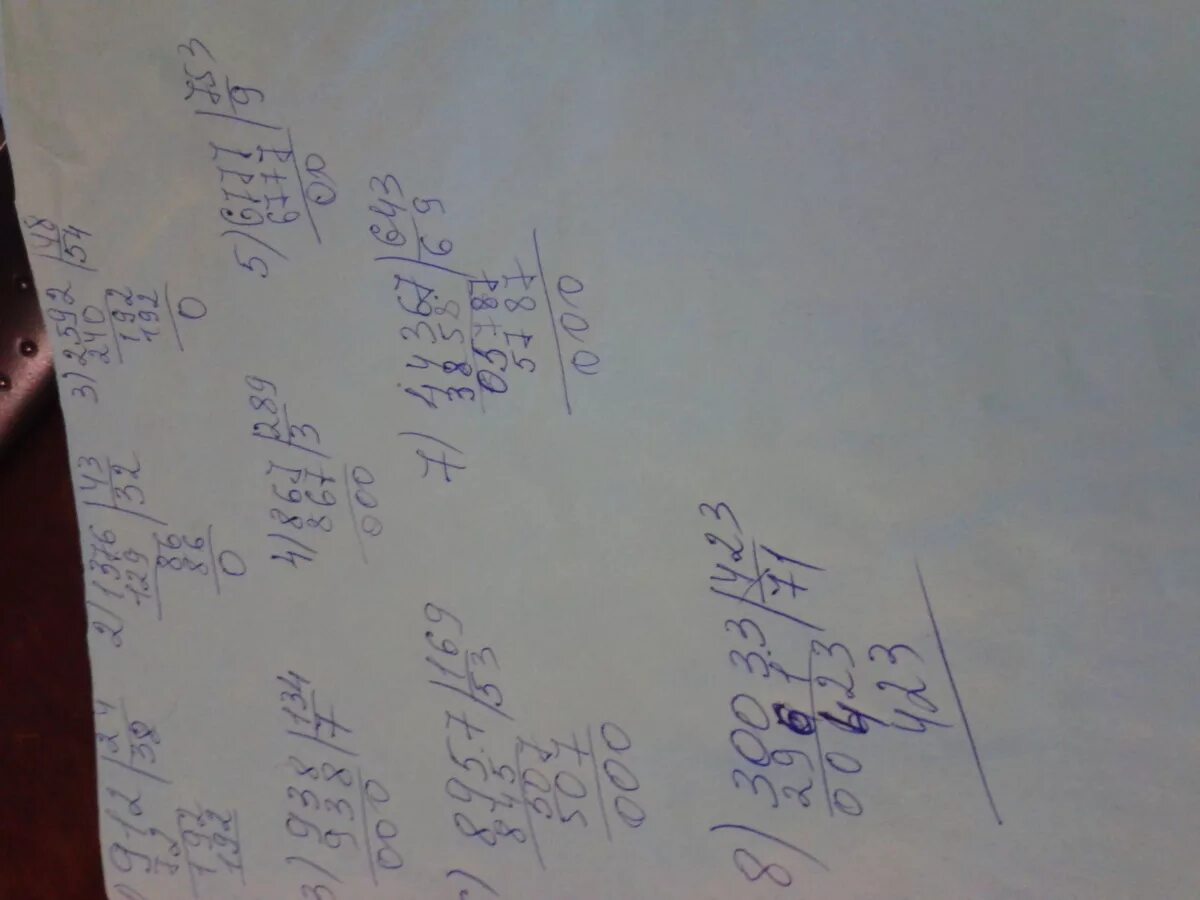 912 |24
72 |38
192
192
2) 1376 |43
129 |32
86
86
0
3) 2592 |48
240 |54
192
192
0
3) 938 |134
938 |7
000
4) 867 |289
867 |3
000
5) 6777 |753
6777 |9
00
) 8957 |169
845 |53
507
507
000
7) 44367 |643
3858 |69
05787
5787
000
8) 30033 |423
2961 |71
00423
423